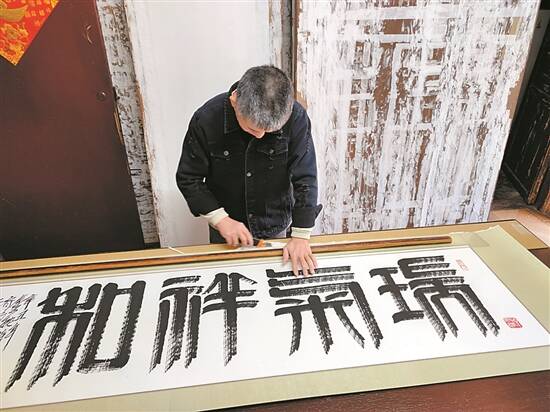 瑞氣祥和